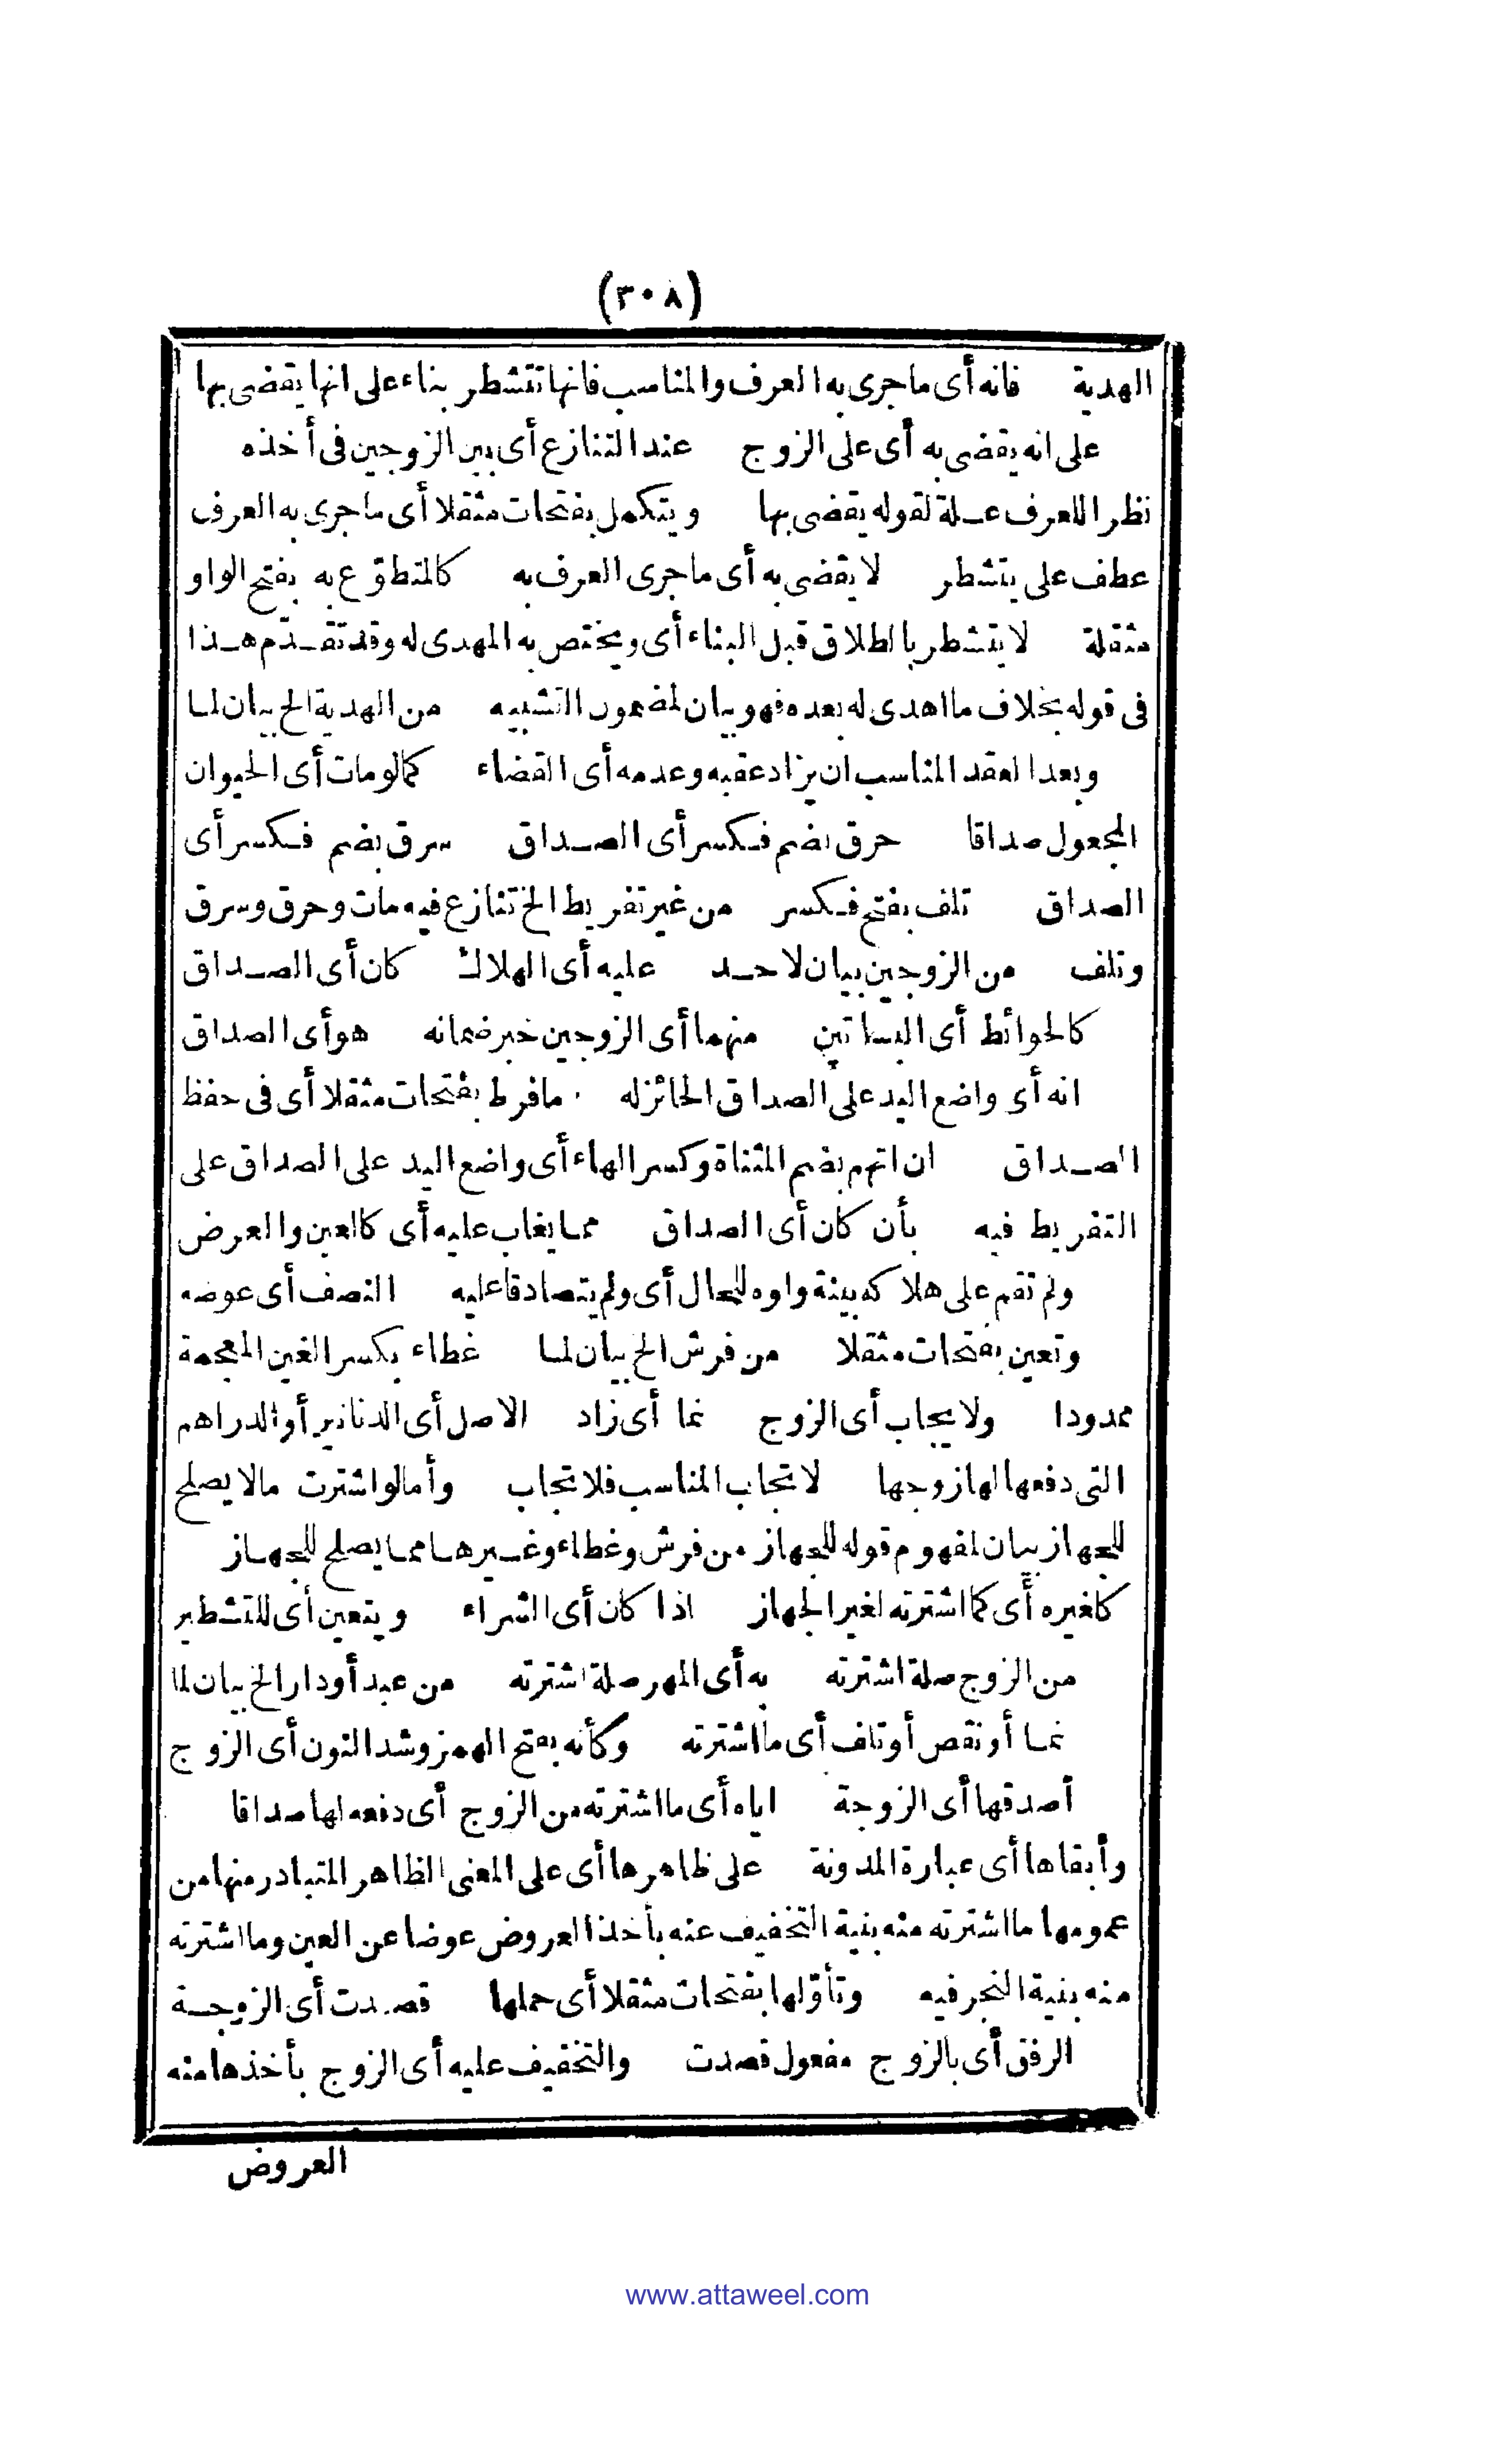 (٣٠٨)
الهدية فانه أى ماجرى به العرف والمناسب فانها تتشطر بناء على انها يقضى بها
على انه يقضى به أى على الزوج عند التنازع أى بين الزوجين فى أخذه
نظرا للعرف عـلة لقوله يقضى بها ويتكمل بفتحات مثقلا أى ماجرى به العرف
عطف على يتشطر لا يقضى به أى ماجرى العرف به كالمتطوّع به بفتح الواو
مثقلة لا يتشطر بالطلاق قبل البناء أى ويختص به المهدى له وقد تقـدّم هـذا
فى قوله بخلاف ما اهدى له بعده فهو بيان لمضمون التشبيه من الهدية الخ بيان لما
وبعد العقد المناسب ان يزاد عقبه وعدمه أى القضاء كما لومات أى الحيوان
المجعول صداقا حرق بضم فـكسر أى الصـداق سرق بضم فـكسر أى
الصداق تلف بفتح فـكسر من غير تفريط الخ تنازع فيه مات وحرق وسرق
وتلف من الزوجين بيان لاحـد عليه أى الهلاك كان أى الصـداق
كالحوائط أى البساتين منهما أى الزوجين خبر ضمانه هو أى الصداق
انه أى واضع اليد على الصداق الحائز له مافرط بفتحات مثقلا أى فى حفظ
الصـداق ان اتهم بضم المثناة وكسر الهاء أى واضع اليد على الصداق على
التفريط فيه بأن كان أى الصداق مما يغاب عليه أى كالعين والعرض
ولم تقم على هلاكه بينة واوه للحال أى ولم يتصادقا عليه النصف أى عوضه
وتعين بفتحات مثقلا من فرش الخ بيان لما غطاء بكسر الغين المعجمة
ممدودا ولا يجاب أى الزوج نما أى زاد الاصل أى الدنانير أو الدراهم
التى دفعها لها زوجها لا تجاب المناسب فلا تجاب وأما لو اشترت مالا يصلح
للجهاز بيان لمفهوم قوله للجهاز من فرش وغطاء وغـيرها مما يصلح للجهاز
كغيره أى كما اشترته لغير الجهاز اذا كان أى الشراء ويتعين أى للتشطير
من الزوج صلة اشترته به أى المهر صلة اشترته من عبد أودار الخ بيان لما
نما أو نقص أو تلف أى ما اشترته وكأنه بفتح الهمز وشد النون أى الزوج
أصدقها أى الزوجة اياه أى ما اشترته من الزوج أى دفعه لها صداقا
وأبقاها أى عبارة المدونة على ظاهرها أى على المعنى الظاهر المتبادر منها من
عمومها ما اشترته منه بنية التخفيف عنه بأخذ العروض عوضا عن العين وما اشترته
منه بنية التجر فيه وتأوّلها بفتحات مثقلا أى حملها قصدت أى الزوجـة
الرفق أى بالزوج مفعول قصدت والتخفيف عليه أى الزوج بأخذها منه
العروض
www.attaweel.com